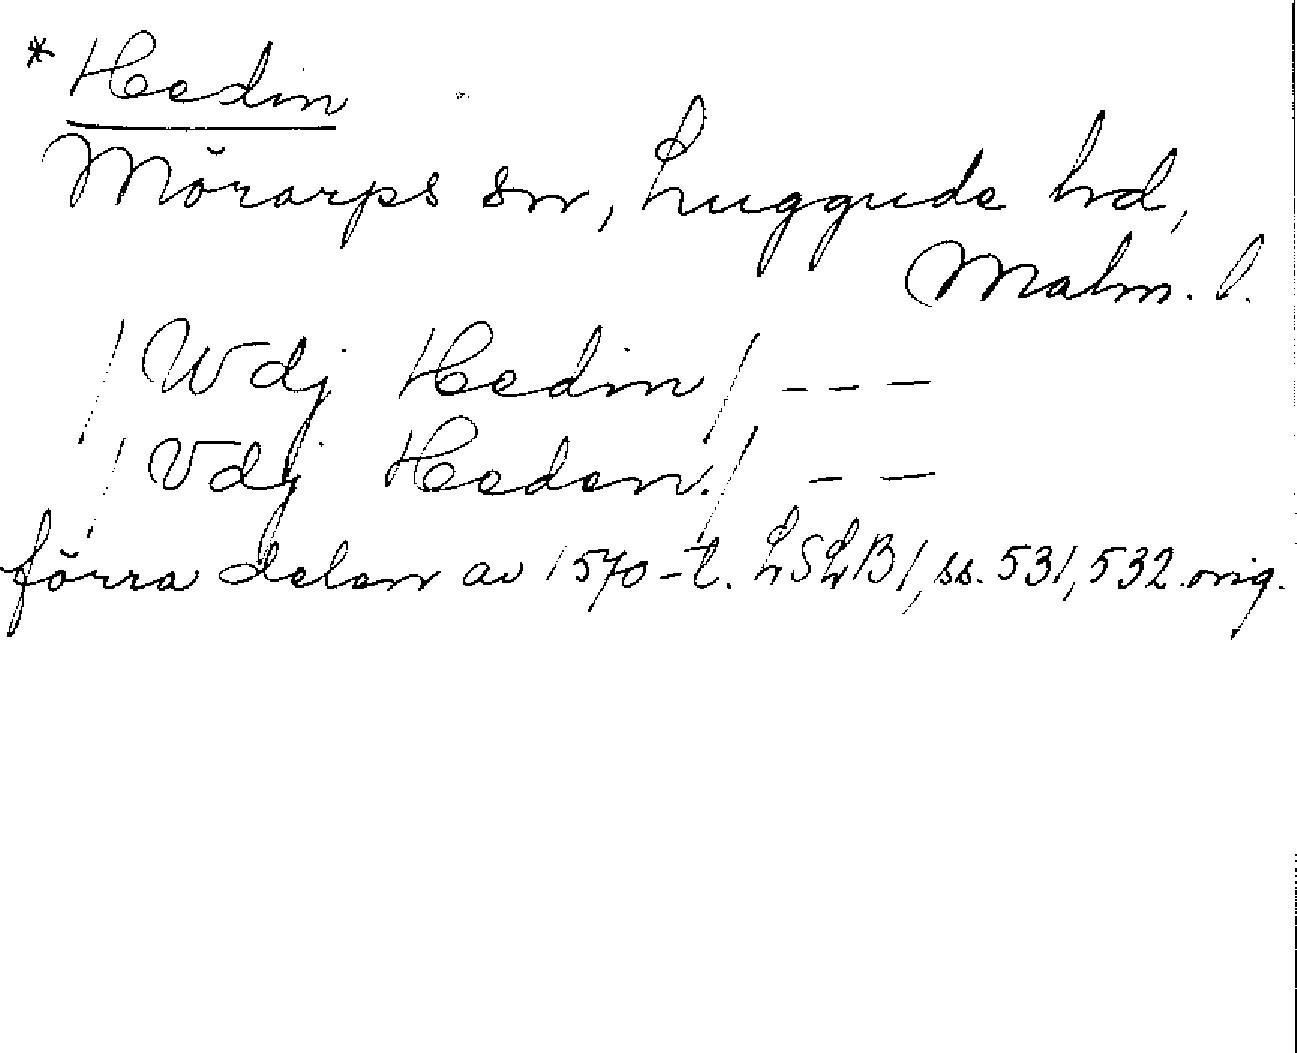 * Hedin
Mörarps sn, Luggude hd,
Malm. l.
/Wdj Hedin/ - - -
/Vdj Heden./ - -
förra delen av 1570-t. LSLB1, ss. 531, 532 orig.